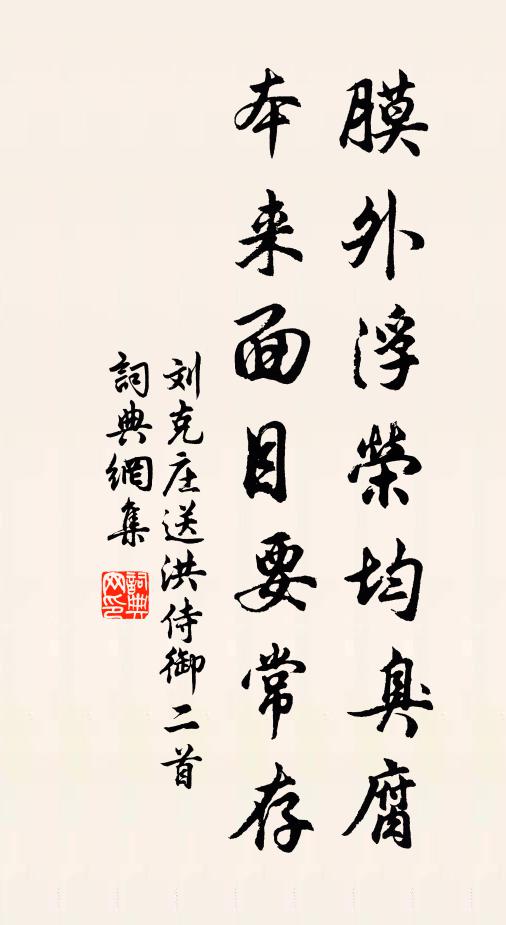 膜外浮榮均臭腐
本来面目要常存
刘克庄送洪侍御二首
詞典網集
詞典网印